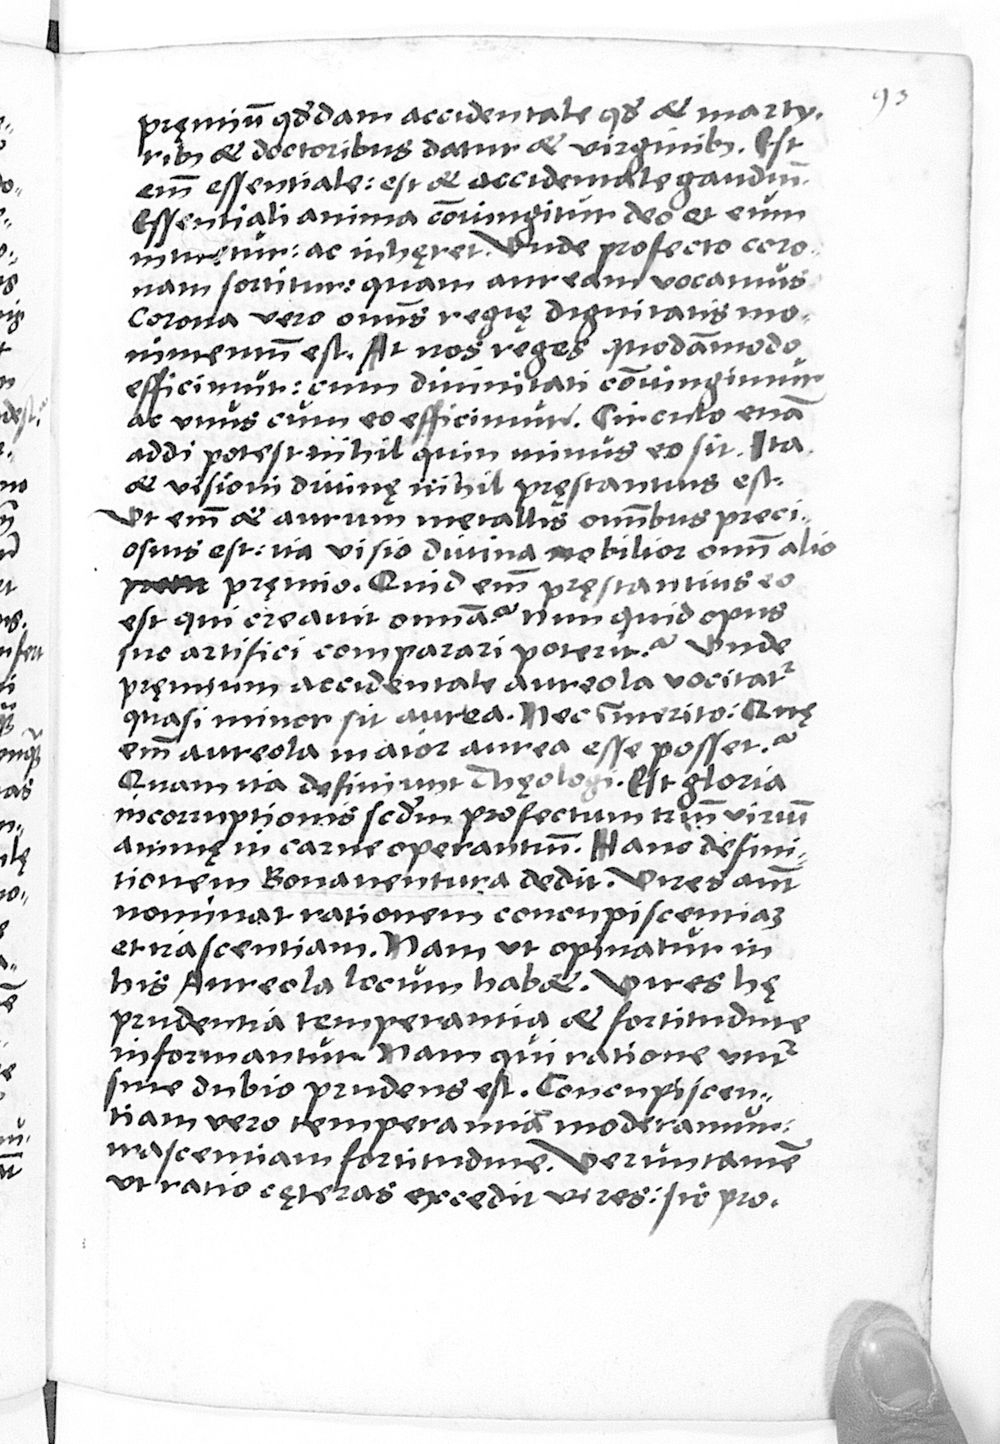 93
pręmiū qđdam accidentale qđ & marty-
rib3 & doctoribus datur & virginib3. Est
em̄ essentiale: est & accidentale gaudiū.
Essentiali anima cōiungitur deo et eum
intuetur: ac inhęret. Vnde profecto coro-
nam sortitur: quam auream vocamus
Corona vero omīs regię dignitatis mo-
nimentū est. At nos reges quodāmodo
efficimur: cum diuinitati cōiungimur
ac vnus cum eo efficimur. Circulo etiā
addi potest nihil quin minus eo sit. Ita
& visioni diuinę nihil pręstantius est.
Vt em̄ & aurum metallis omībus preci-
osius est: ita visio diuina nobilior omī alio
pręmio. Quid em̄ pręstantius eo
est qui creauit omīa? Nunquid opus
suo artifici comparari poterit? Vnde
pręmium accidentale aureola vocitat᷑
quasi minor sit aurea. Nec īmerito: Quę
em̄ aureola maior aurea esse posset?
Quam ita definiunt Theologi. Est gloria
incorruptionis scđm profectum triū virium
animę in carne operantiū. Hanc defini-
tionem Bonauentura dedit. Vires aūt
nominat rationem concupiscentiam
et irascentiam. Nam vt opinatur in
his Aureola locum hab&. Vires hę
prudentia temperantia & fortitudine
informantur. Nam qui ratione vtit᷑
sine dubio prudens est. Concupiscen-
tiam vero temperantia moderamur:
irascentiam fortitudine. Veruntamē
vt ratio cęteras excedit vires: sic pro-